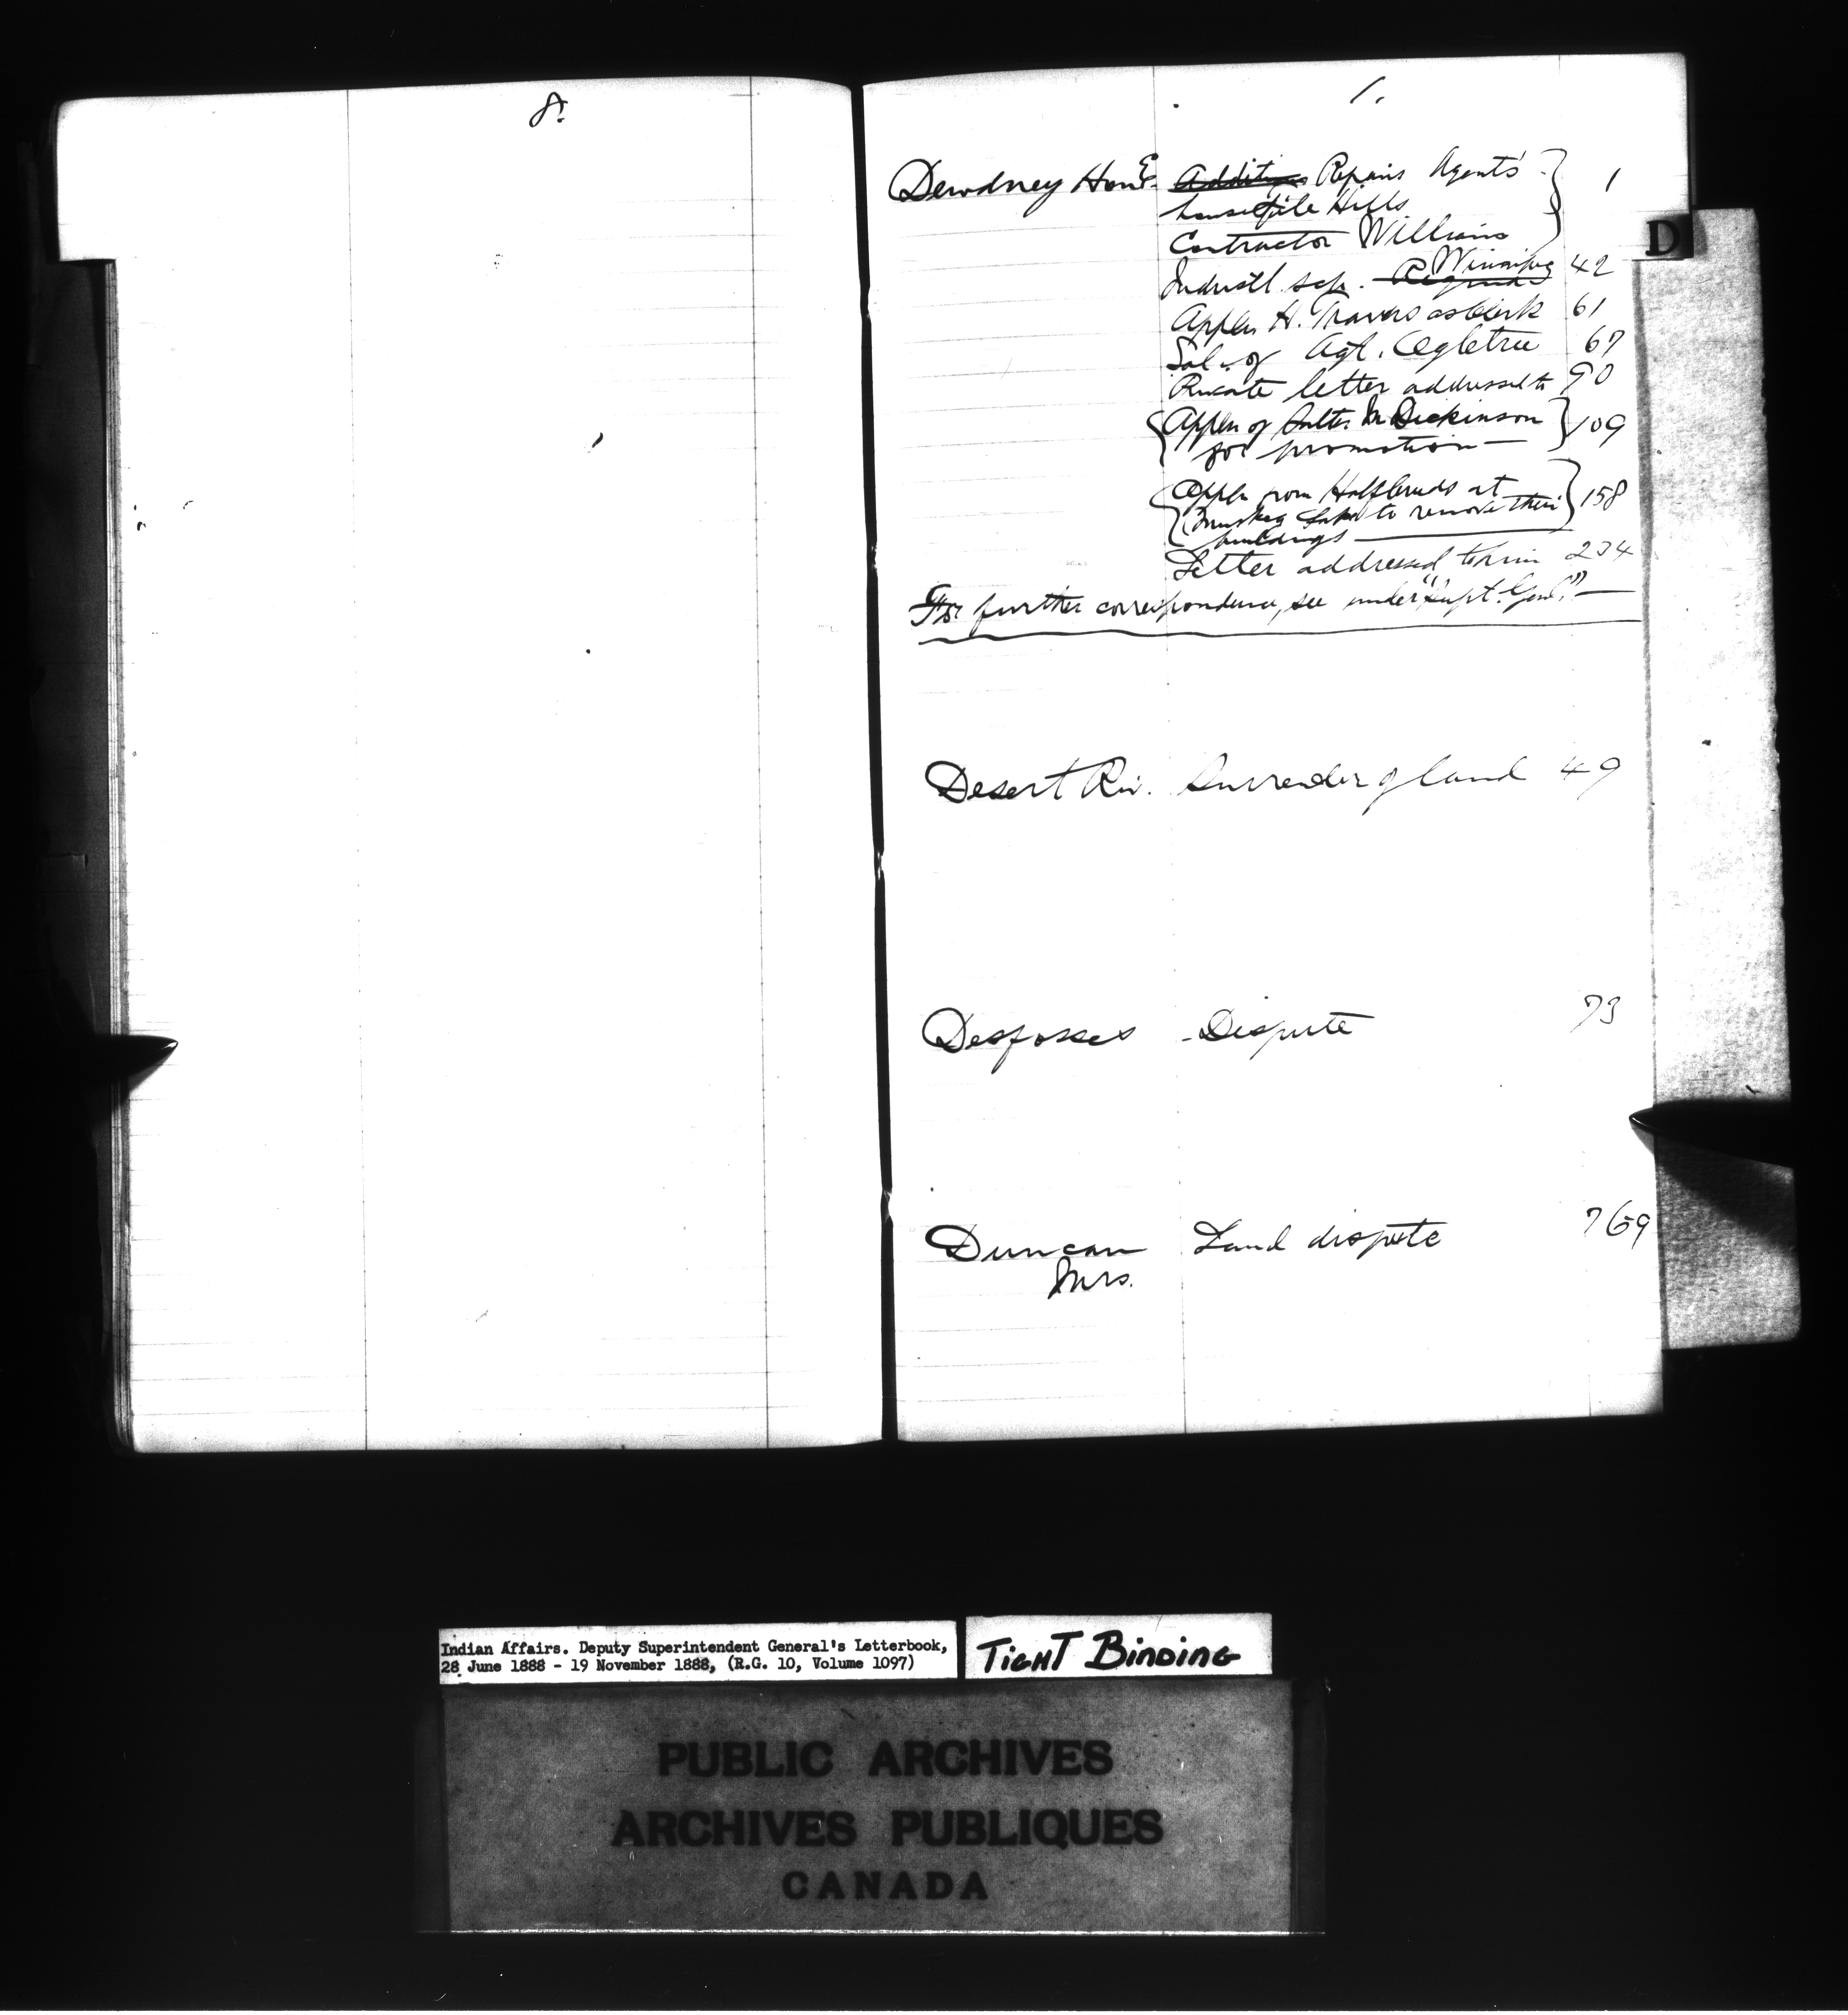 8.
1.
D
Dewdney Hon E. Additions Repairs Agents' 1
house File Hills
Contractor Williams
Winnipeg
Industl. sch. Regina 42
Appln H. Travers as Clerk 61
Sal. of Agt. Ogletree 67
Private letter addressed to 90
Appln of Dickinson 109
for promotion —
Appln from Halfbreeds at 158
Muskeg Lake to remove their
buildings —
Letter addressed to him 234
For further correspondence, see under "Supt. Genl." —
Desert Riv. Surrender of land 49
Desfosses - Dispute 73
Duncan Land dispute 769
Mrs.
Indian Affairs. Deputy Superintendent General's Letterbook,
28 June 1888 - 19 November 1888, (R.G. 10, Volume 1097)
TIGHT BINDING
PUBLIC ARCHIVES
ARCHIVES PUBLIQUES
CANADA